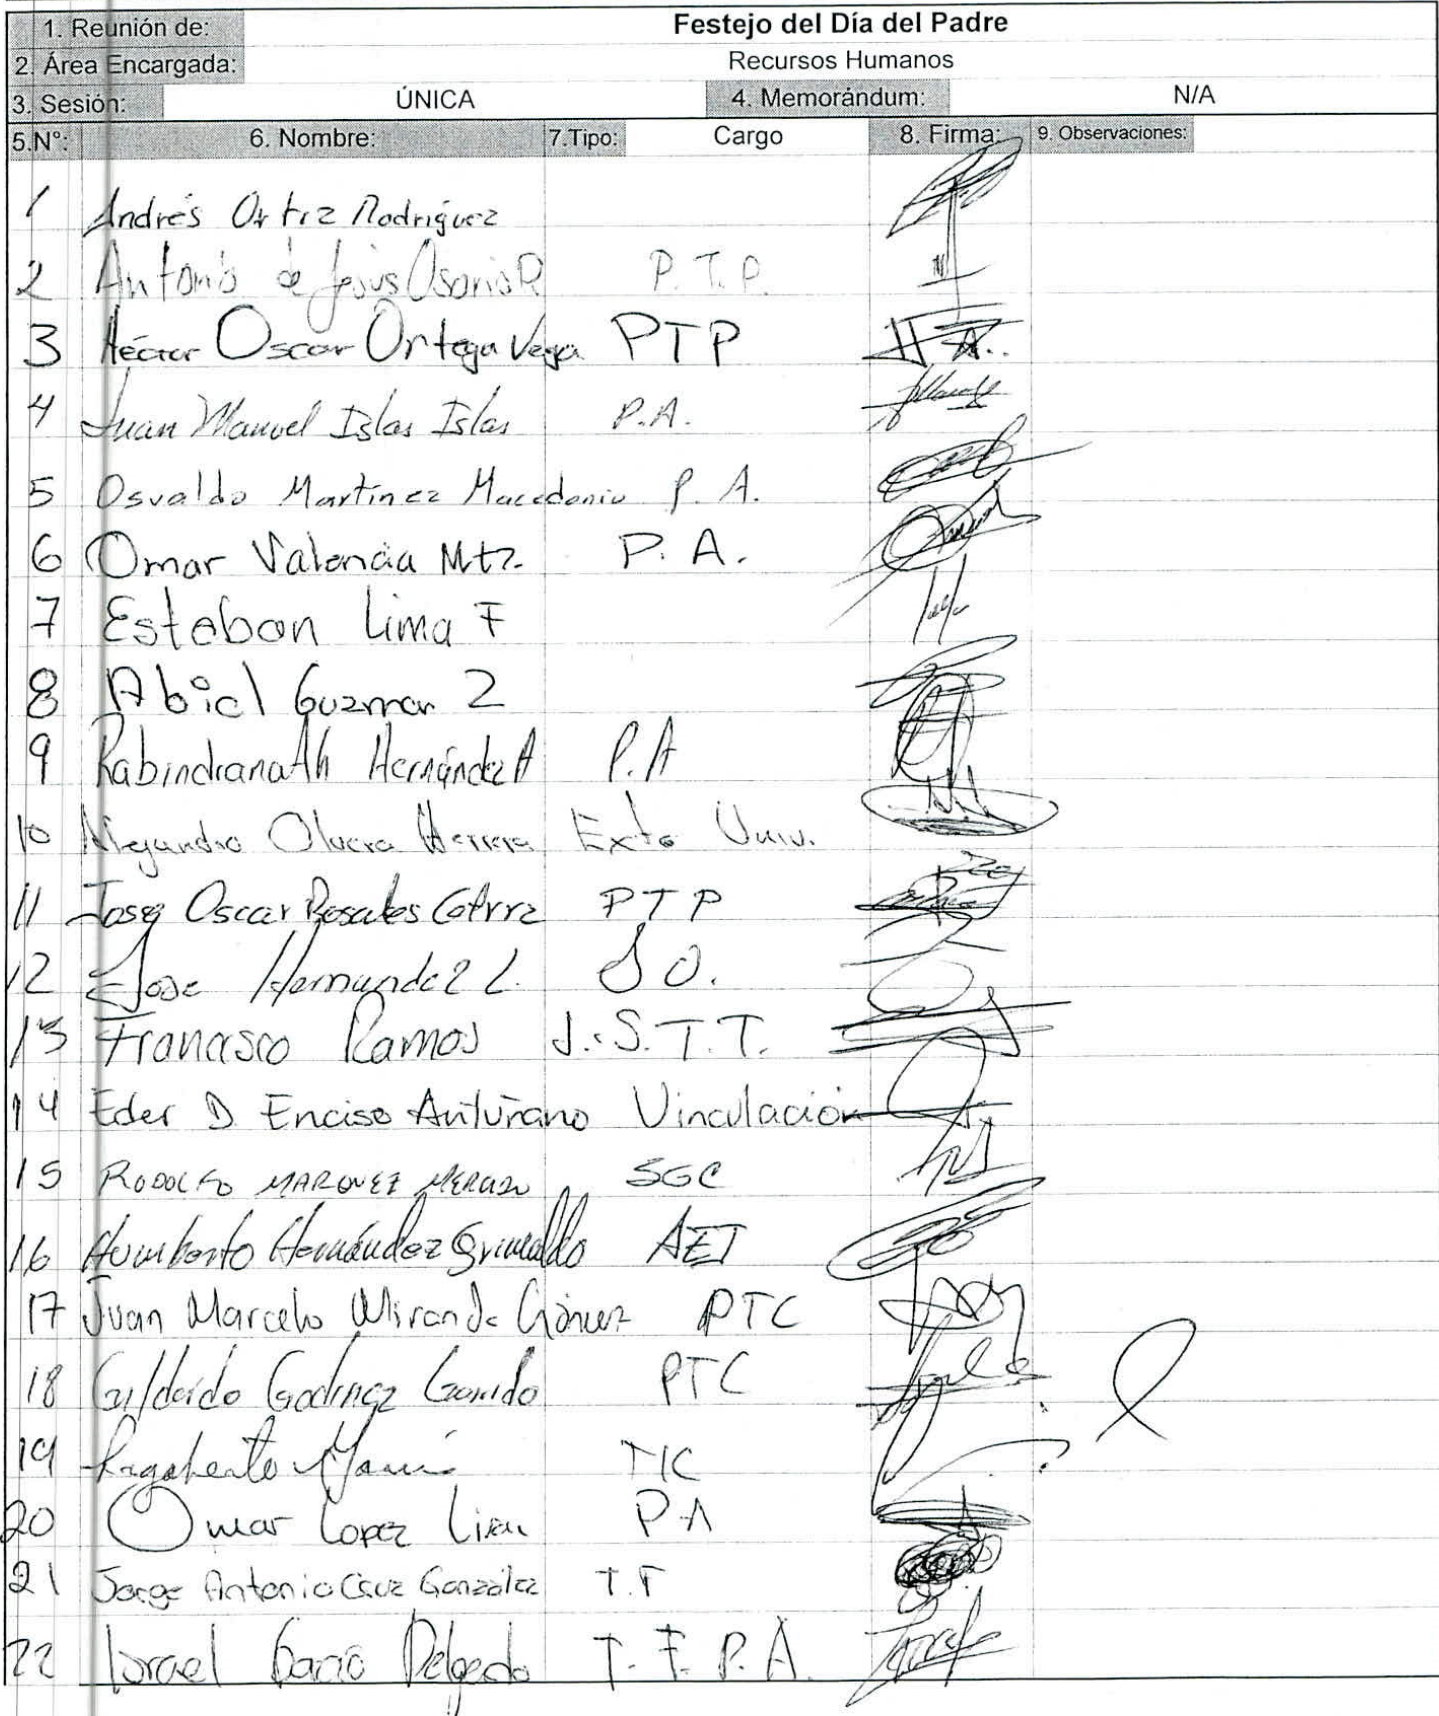 1. Reunión de: Festejo del Día del Padre
2. Área Encargada: Recursos Humanos
3. Sesión: ÚNICA 4. Memorándum: N/A
5.N°: 6. Nombre: 7.Tipo: Cargo 8. Firma: 9. Observaciones:
1 Andrés Ortiz Rodríguez
2 Antonio de Jesús Osorio R P.T.P.
3 Héctor Oscar Ortega Vega PTP
4 Juan Manuel Islas Islas P.A.
5 Osvaldo Martínez Macedonio P. A.
6 Omar Valencia Mtz. P. A.
7 Esteban Lima F
8 Abiel Guzman Z
9 Rabindranath Hernández A P.A
10 Alejandro Olvera Herrera Exto Univ.
11 Jose Oscar Rosales PTP
12 Jose Hernandez L. S O.
13 Francisco Ramos J.S.T.T.
14 Eder D. Enciso Antuñano Vinculación
15 RODOLFO MARQUEZ SGC
16 Humberto Hernández Grimaldo AEI
17 Juan Marcelo Miranda Gómez PTC
18 Gildardo Godinez Garrido PTC
19 TIC
20 Omar Lopez PA
21 Jorge Antonio Cruz González T.F
22 Israel Delgado T. F. P. A.